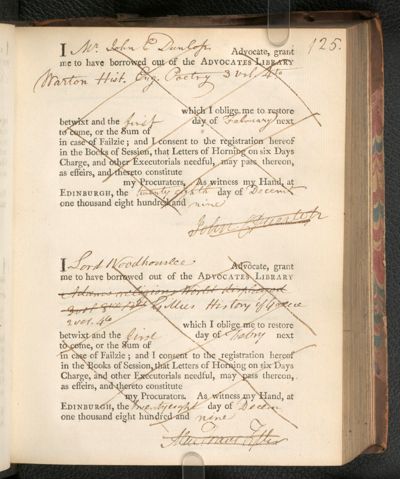 125.
I Mr. John C Dunlop Advocate, grant
me to have borrowed out of the ADVOCATES LIBRARY
Warton Hist. Eng. Poetry 3 vol. 4to
which I oblige me to restore
betwixt and the first day of February next
to come, or the Sum of
in case of Failzie; and I consent to the registration hereof
in the Books of Session, that Letters of Horning on six Days
Charge, and other Executorials needful, may pass thereon,
as effeirs, and thereto constitute
my Procurators. As witness my Hand, at
EDINBURGH, the twenty eighth day of Decem
one thousand eight hundred and nine
John C Dunlop
I Lord Woodhouselee Advocate, grant
me to have borrowed out of the ADVOCATES LIBRARY
Adams religious World displayed
Gillies History of Greece
2 vol. 4to
which I oblige me to restore
betwixt and the first day of Febry next
to come, or the Sum of
in case of Failzie; and I consent to the registration hereof
in the Books of Session, that Letters of Horning on six Days
Charge, and other Executorials needful, may pass thereon,
as effeirs, and thereto constitute
my Procurators. As witness my Hand, at
EDINBURGH, the twenty eight day of Decem
one thousand eight hundred and nine